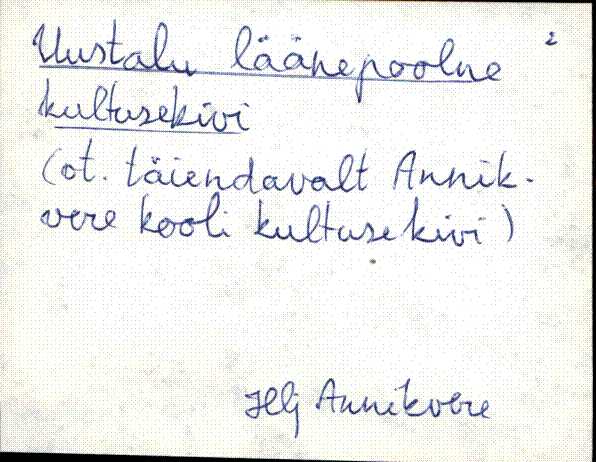 Uustalu läänepoolne 2
kultusekivi
(ot. täiendavalt Annik-
vere kooli kultusekivi)
Hlj Annikvere